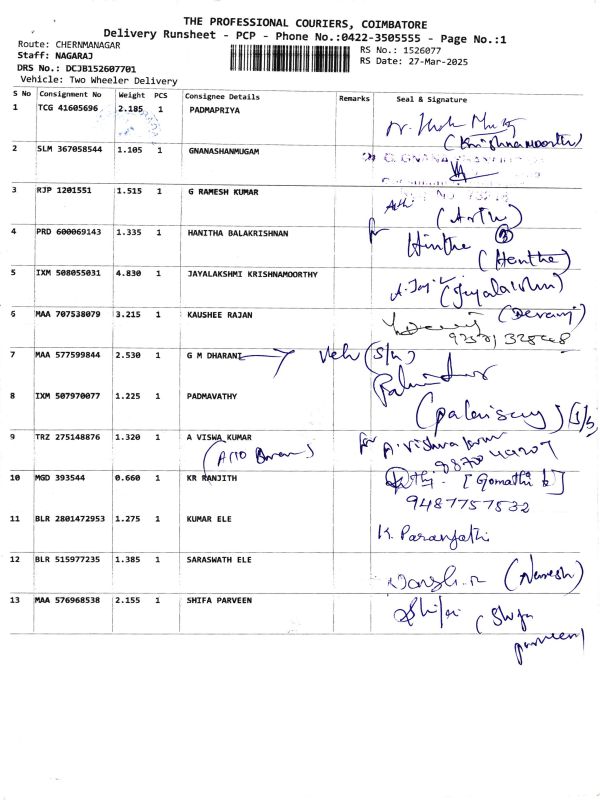 THE PROFESSIONAL COURIERS, COIMBATORE
Delivery Runsheet - PCP - Phone No.:0422-3505555 - Page No.:1
Route: CHERNMANAGAR
Staff: NAGARAJ
DRS No.: DCJB152607701
Vehicle: Two Wheeler Delivery
RS No.: 1526077
RS Date: 27-Mar-2025
S No Consignment No Weight PCS Consignee Details Remarks Seal & Signature
1 TCG 41605696 2.185 1 PADMAPRIYA
(Krishnamoorthy)
2 SLM 367058544 1.105 1 GNANASHANMUGAM
3 RJP 1201551 1.515 1 G RAMESH KUMAR
(Arthi)
4 PRD 600069143 1.335 1 HANITHA BALAKRISHNAN
for
5 IXM 508055031 4.830 1 JAYALAKSHMI KRISHNAMOORTHY
6 MAA 707538079 3.215 1 KAUSHEE RAJAN
7 MAA 577599844 2.530 1 G M DHARANI
8 IXM 507970077 1.225 1 PADMAVATHY
9 TRZ 275148876 1.320 1 A VISWA KUMAR
for A. Vishwakumar
10 MGD 393544 0.660 1 KR RANJITH
[Gomathi k]
9487757532
11 BLR 2801472953 1.275 1 KUMAR ELE
K. Paranjothi
12 BLR 515977235 1.385 1 SARASWATH ELE
(Naresh)
13 MAA 576968538 2.155 1 SHIFA PARVEEN
(Shifa
parveen)